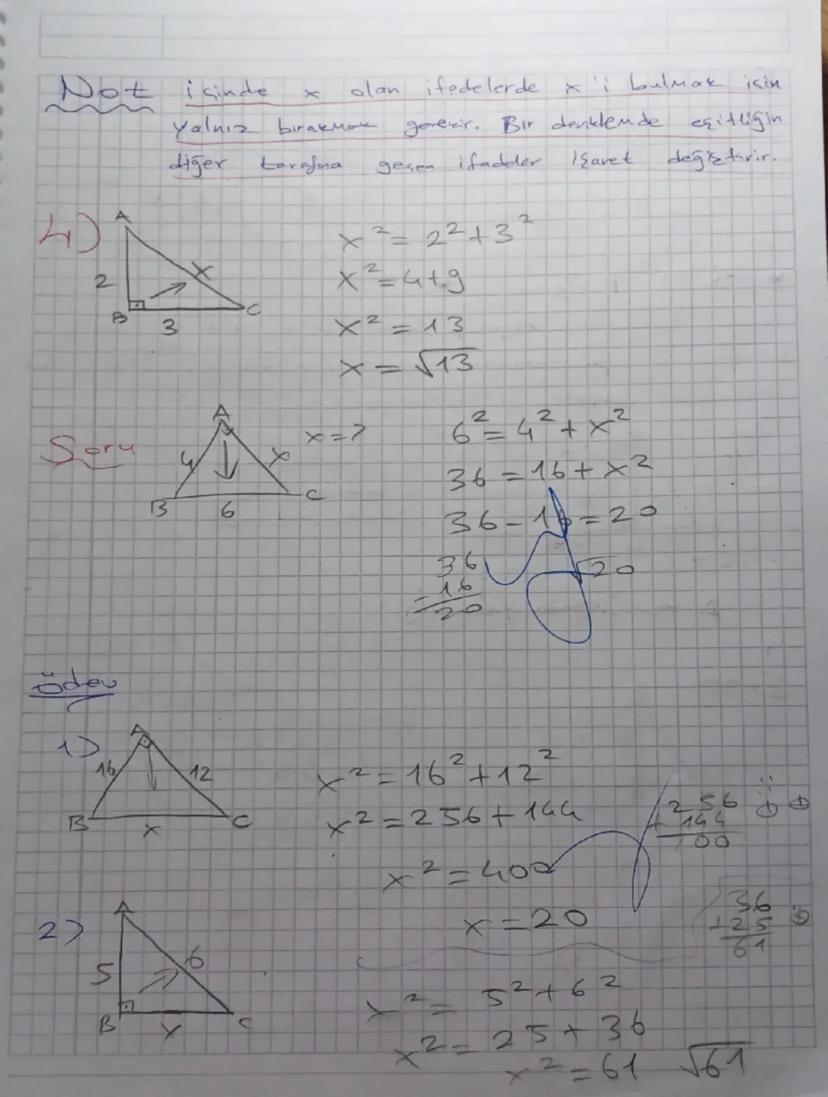 Not içinde x olan ifadelerde x'i bulmak için
yalnız bırakmak gerekir. Bir denklemde eşitliğin
diğer tarafına geçen ifadeler işaret değiştirir.
4)
A
2
x
B
3
C
x² = 2² + 3²
x² = 4 + 9
x² = 13
x = √13
Soru
A
x = ?
4
x
B
6
C
6² = 4² + x²
36 = 16 + x²
36 - 16 = 20
36
- 16
20
√20
Ödev
1)
A
16
12
B
x
C
x² = 16² + 12²
x² = 256 + 144
256
+ 144
400
x² = 400
x = 20
36
+ 25
61
2)
A
5
6
B
x
C
x² = 5² + 6²
x² = 25 + 36
x² = 61 √61